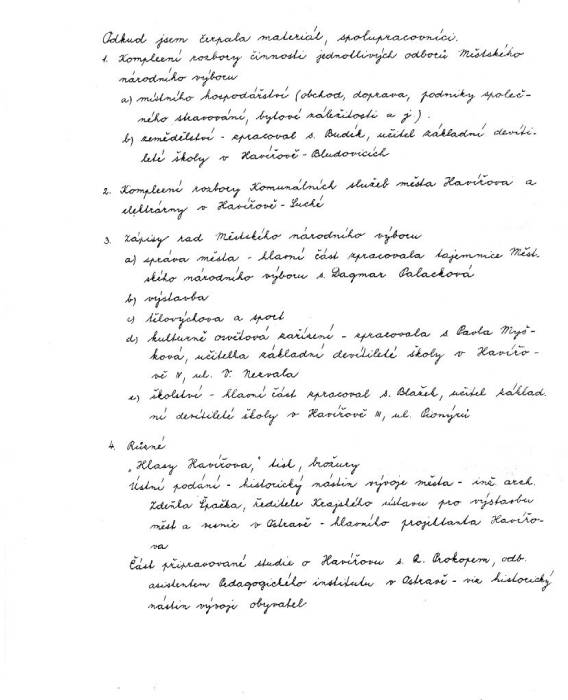 Odkud jsem čerpala materiál, spolupracovníci.
1. Komplexní rozbory činnosti jednotlivých odborů Městského
národního výboru
a) místního hospodářství (obchod, doprava, podniky společ-
ného stravování, bytové záležitosti a j.).
b) zemědělství - zpracoval s. Budík, učitel základní devíti-
leté školy v Havířově-Bludovicích
2. Komplexní rozbory Komunálních služeb města Havířova a
elektrárny v Havířově-Suché
3. Zápisy rad Městského národního výboru
a) správa města - hlavní část zpracovala tajemnice Měst-
ského národního výboru s. Dagmar Palacková
b) výstavba
c) tělovýchova a sport
d) kulturně osvětová zařízení - zpracovala s. Pavla Myš-
ková, učitelka základní devítileté školy v Havířo-
vě IV, ul. V. Nezvala
e) školství - hlavní část zpracoval s. Blažek, učitel základ.
ní devítileté školy v Havířově III, ul. Pionýrů
4. Různé
"Hlasy Havířova," tisk, brožury
Ústní podání - historický nástin vývoje města - inž. arch.
Zdeňka Špačka, ředitele Krajského ústavu pro výstavbu
měst a vesnic v Ostravě - hlavního projektanta Havířo-
va
Část připravované studie o Havířovu s. R. Prokopem, odb.
asistentem Pedagogického institutu v Ostravě - viz historický
nástin vývoje obyvatel